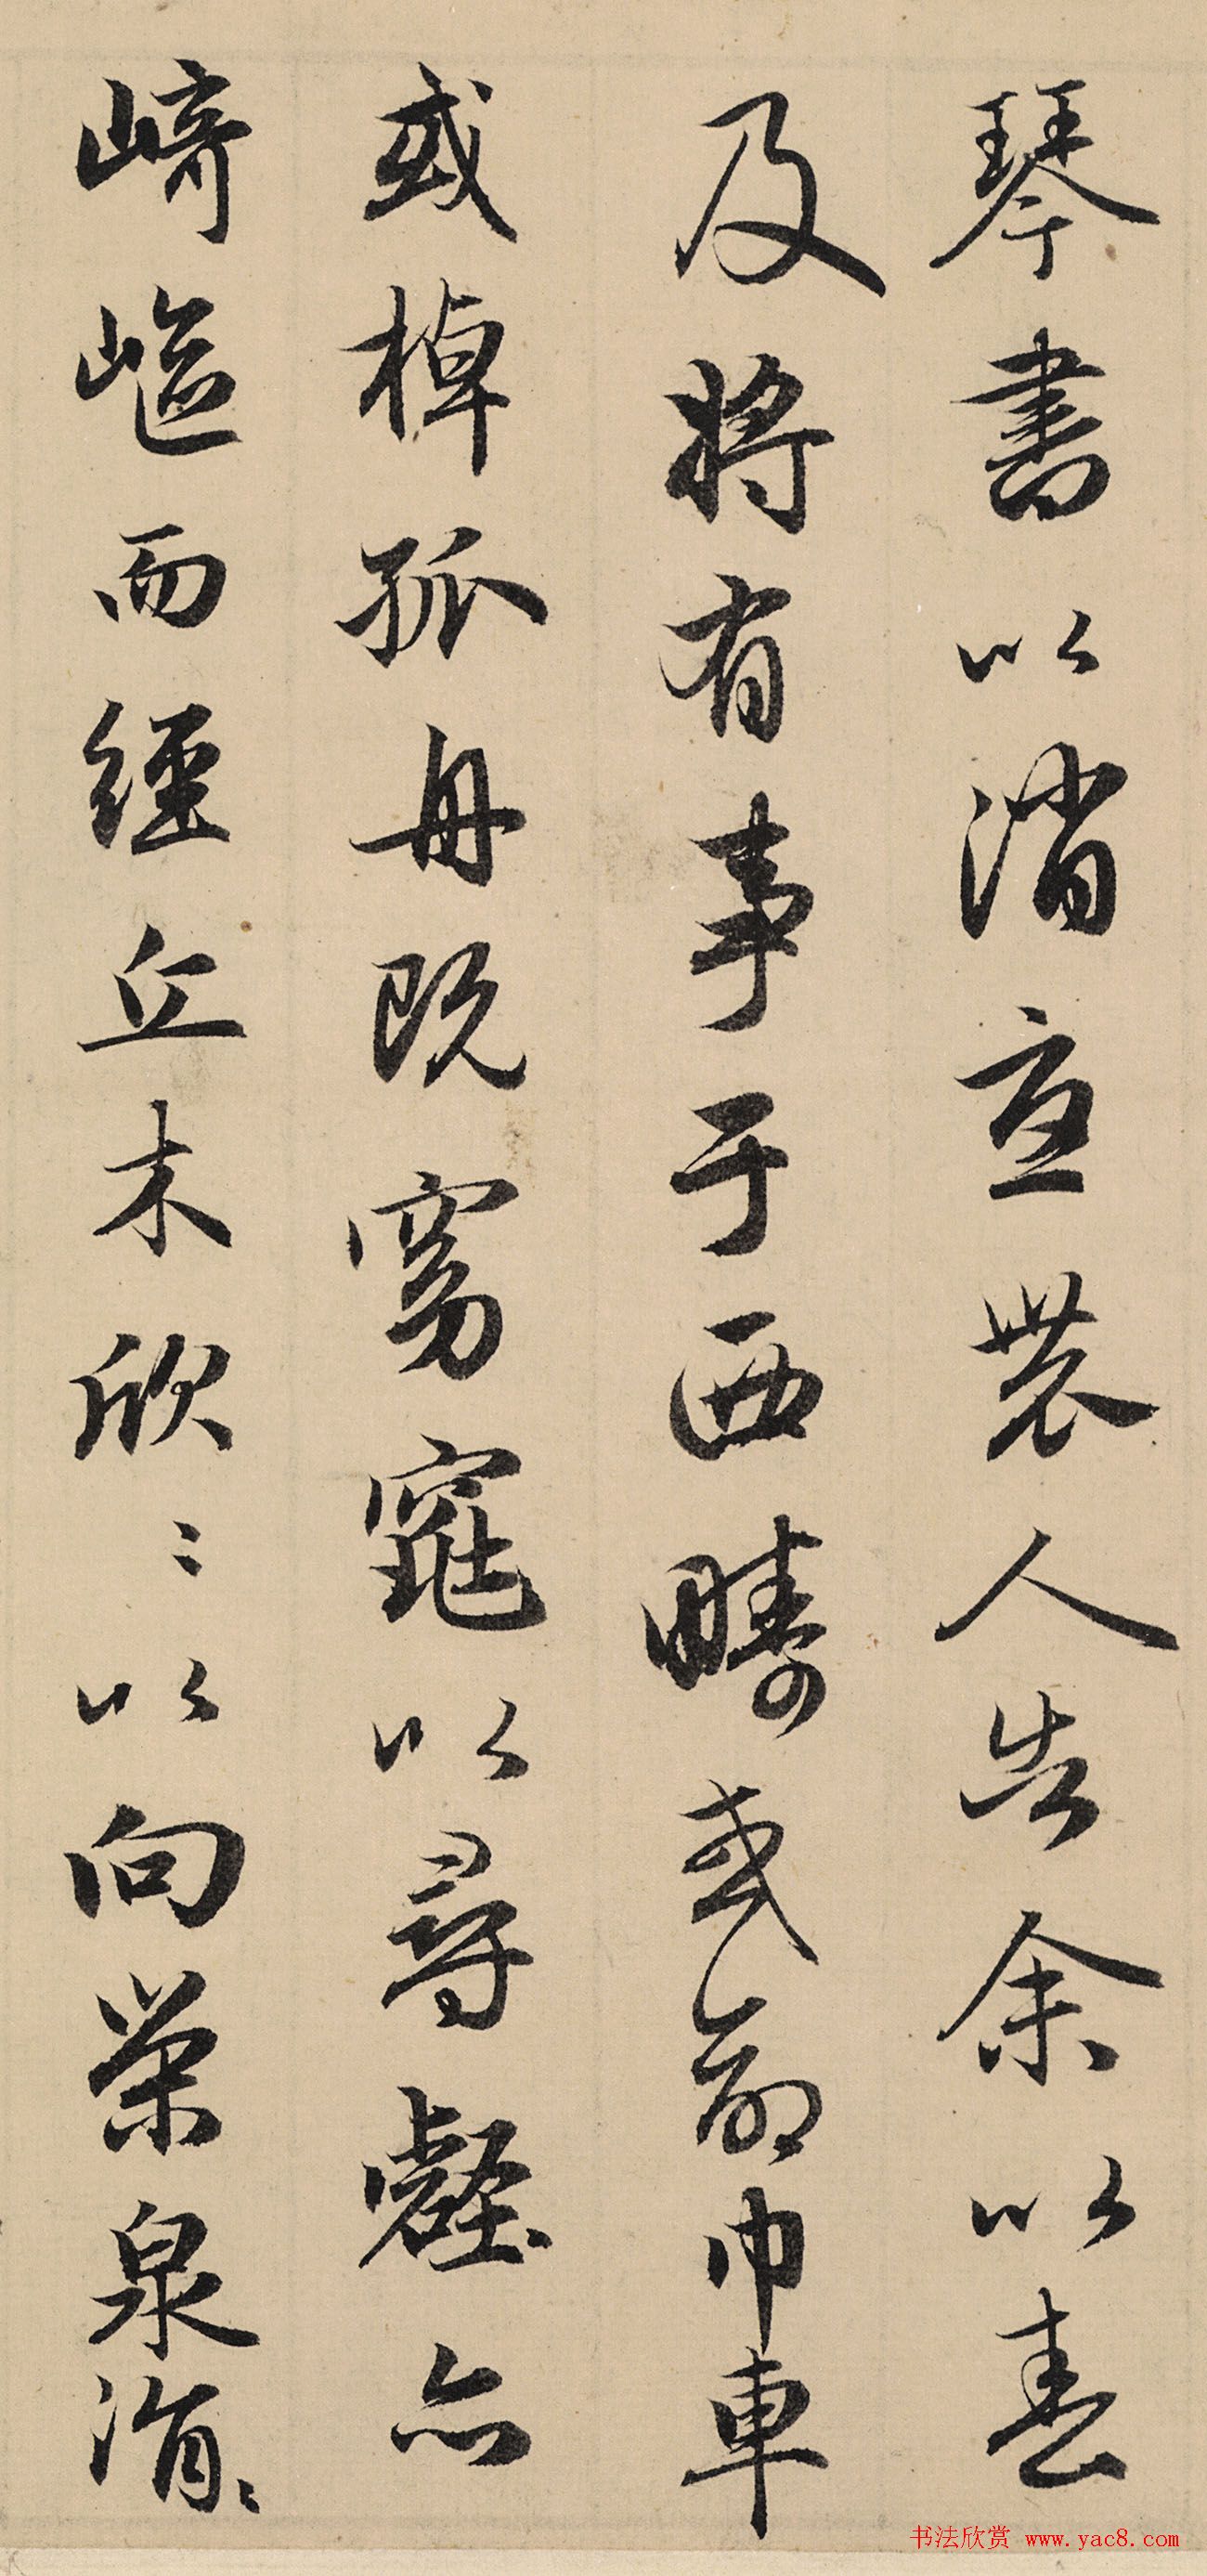 琴書以消憂農人告余以春
及將有事于西疇或命巾車
或棹孤舟既窈窕以尋壑亦
崎嶇而經丘木欣〻以向榮泉涓〻
书法欣赏 www.yac8.com